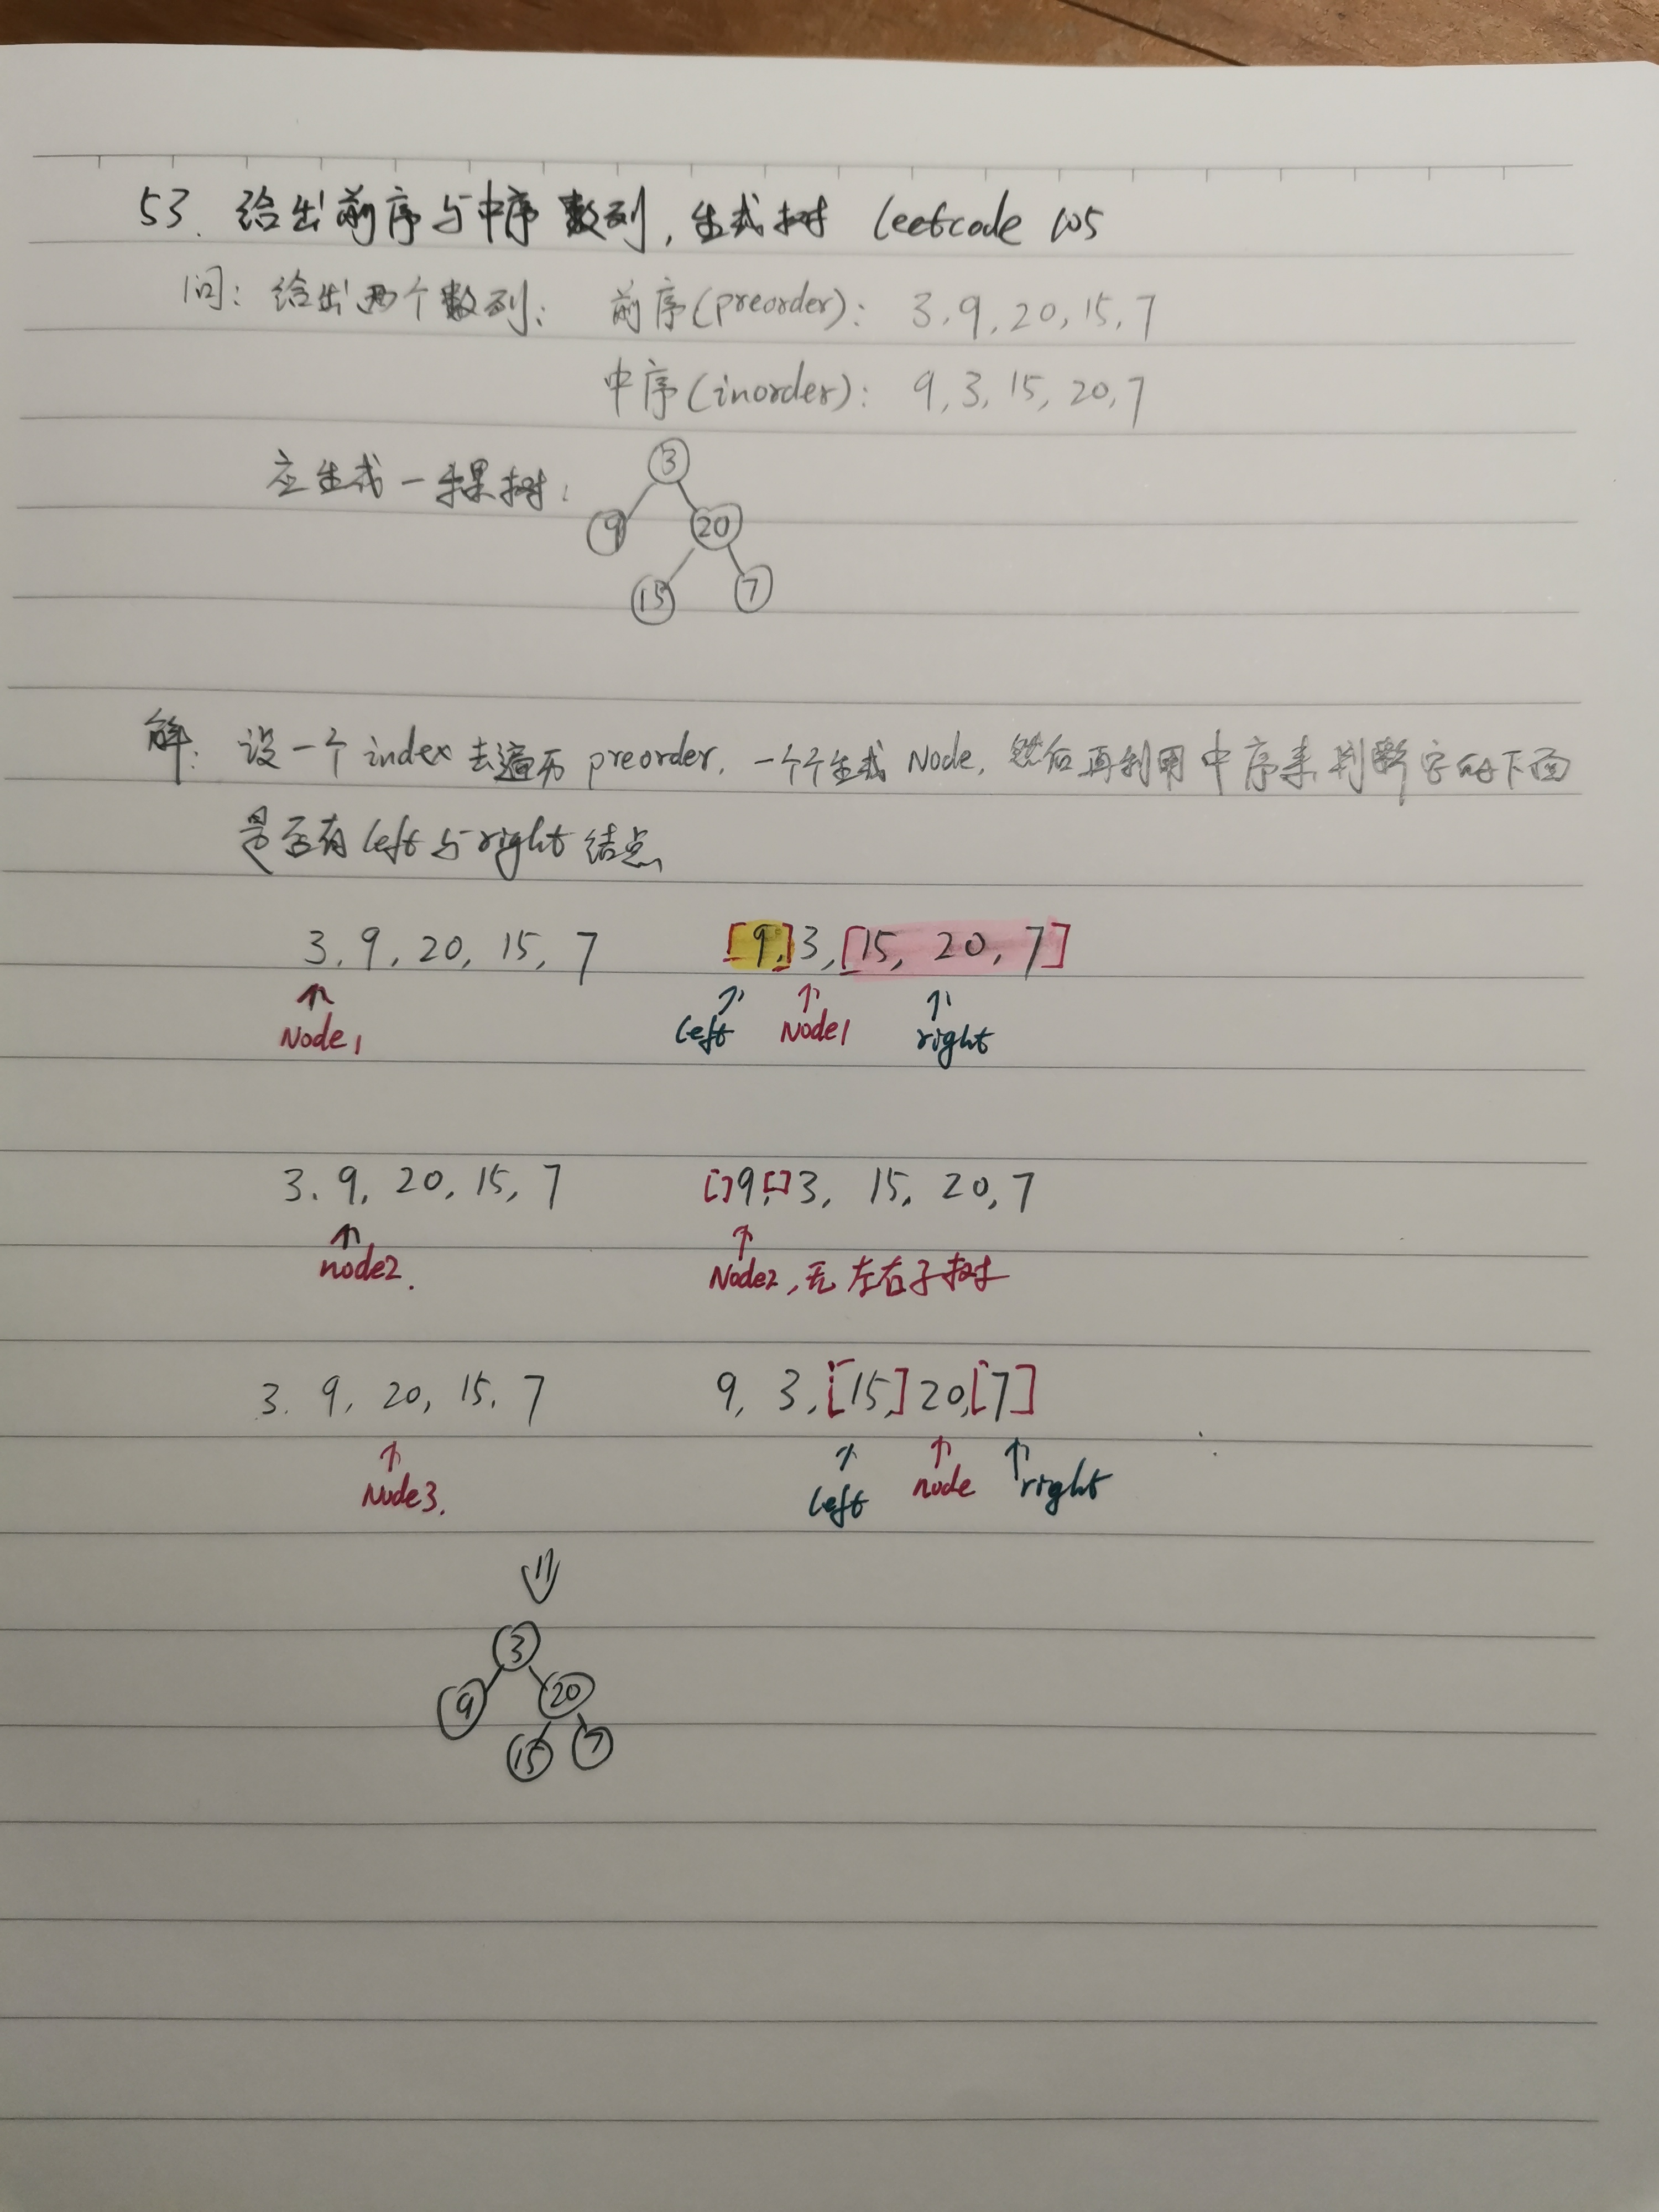 53. 给出前序与中序数列,生成树 leetcode 105
问: 给出两个数列: 前序(preorder): 3,9,20,15,7
中序(inorder): 9,3,15,20,7
应生成一棵树:
3
9 20
15 7
解: 设一个index去遍历preorder,一个个生成Node,然后再利用中序来判断它的下面
是否有left与right结点
3,9,20,15,7 [9,]3,[15,20,7]
Node1 left Node1 right
3,9,20,15,7 []9,[]3,15,20,7
node2. Node2,无左右子树
3,9,20,15,7 9,3,[15,]20,[7]
Node3. left node right
3
9 20
15 7